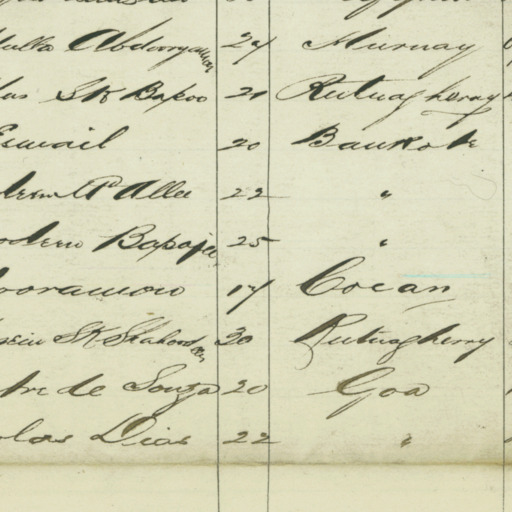 ulla Abdorryaman 24 Murnay
Sk Bapoo 21 Rutnagherry
Esmail 20 Bankote
Allee 22 "
Bapajee 25 "
ooramow 17 Cocan
ssein Sk Shahood 30 Rutnagherry
de Souza 20 Goa
olas Dias 22 "